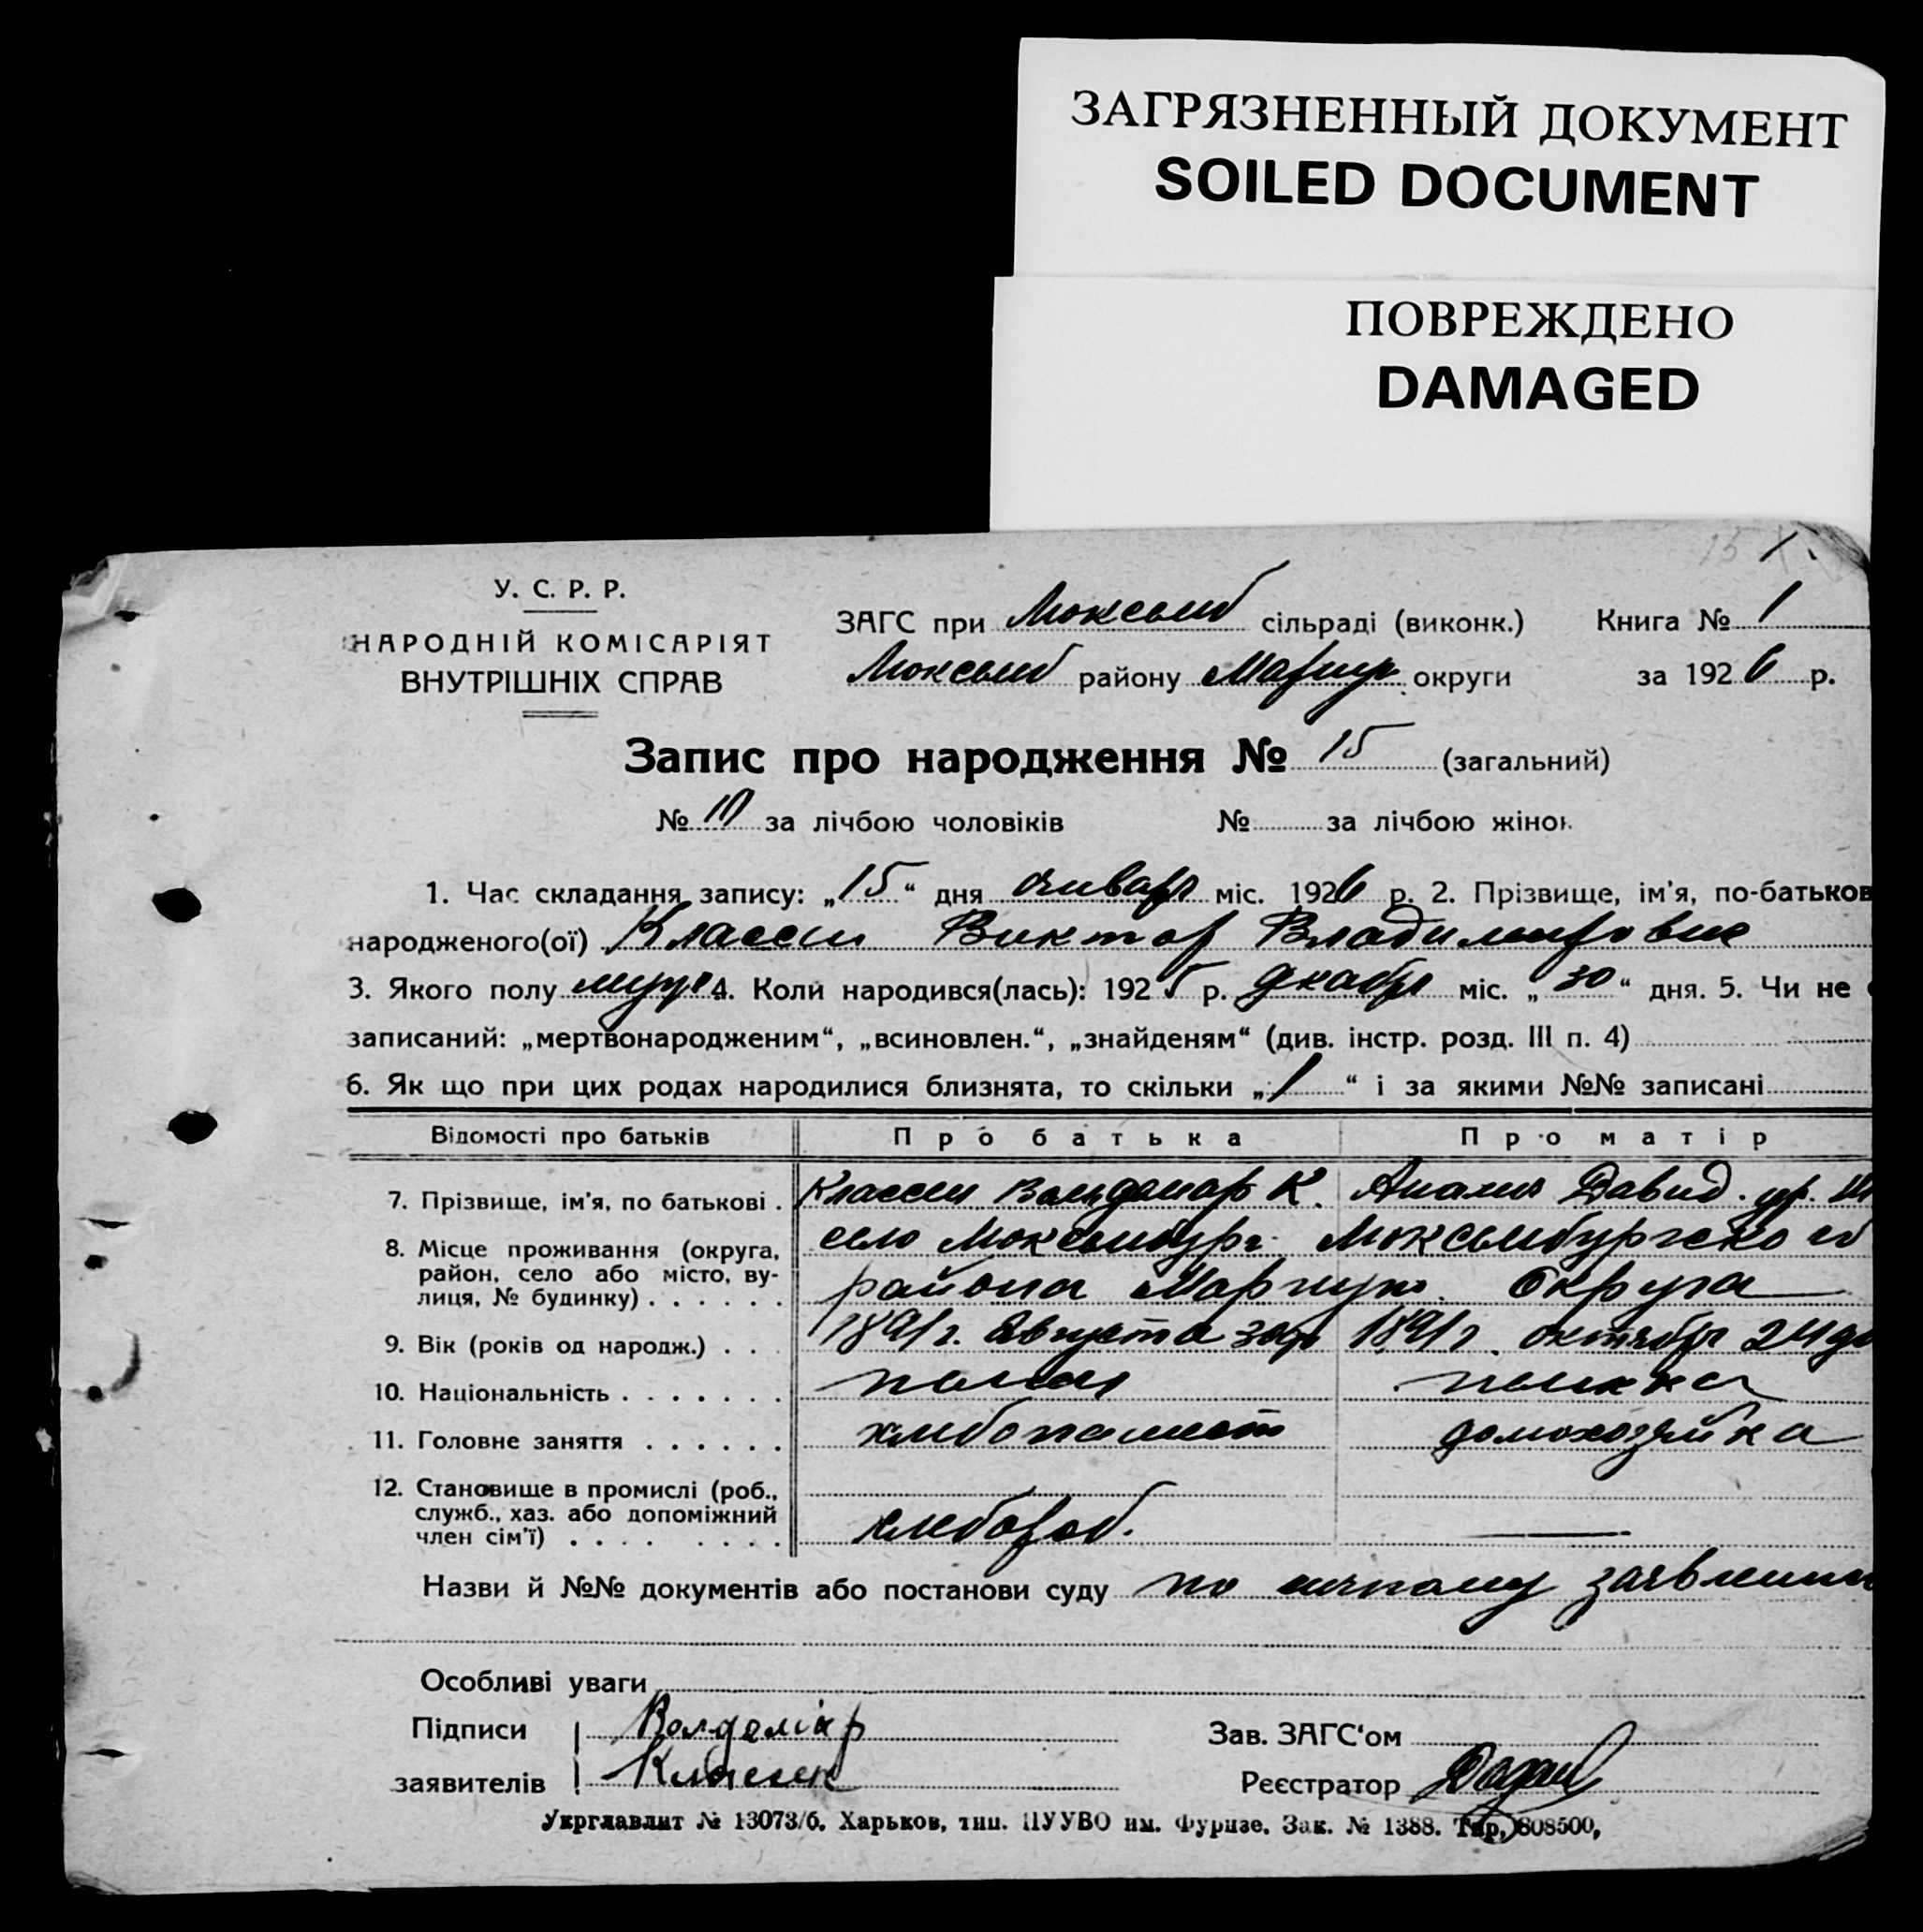 ЗАГРЯЗНЕННЫЙ ДОКУМЕНТ
SOILED DOCUMENT
ПОВРЕЖДЕНО
DAMAGED
15
У. С. Р. Р.
НАРОДНІЙ КОМІСАРІЯТ
ВНУТРІШНІХ СПРАВ
ЗАГС при сільраді (виконк.) Книга № 1
району округи за 1926 р.
Запис про народження № 15 (загальний)
№ 10 за лічбою чоловіків № за лічбою жінок
1. Час складання запису: „15“ дня январ міс. 1926 р. 2. Прізвище, ім'я, по-батьков
народженого(ої) Виктор Владимирович
3. Якого полу муж 4. Коли народився(лась): 1925 р. декабр міс. „30“ дня. 5. Чи не
записаний: „мертвонародженим“, „всиновлен.“, „знайденям“ (див. інстр. розд. III п. 4)
6. Як що при цих родах народилися близнята, то скільки „1“ і за якими №№ записані
Відомості про батьків Про батька Про матір
7. Прізвище, ім'я, по батькові . Вольдемар К. Давид. ур.
8. Місце проживання (округа, район, село або місто, вулиця, № будинку) . . . . . . село
района округа
9. Вік (років од народж.) . . . 1891 г. Августа 1891 г. октябр 24
10. Національність . . . . . . . поляк полька
11. Головне заняття . . . . . . хлебопашест домохозяйка
12. Становище в промислі (роб., служб., хаз. або допоміжний член сім'ї) . . . . . . . . хлебороб.
Назви й №№ документів або постанови суду по личному заявлению
Особливі уваги
Підписи Волдемар Зав. ЗАГС'ом
заявителів Реєстратор
Укрглавлит № 13073/б. Харьков, тип. ПУУВО им. Фрунзе. Зак. № 1388. Тир. 808500,